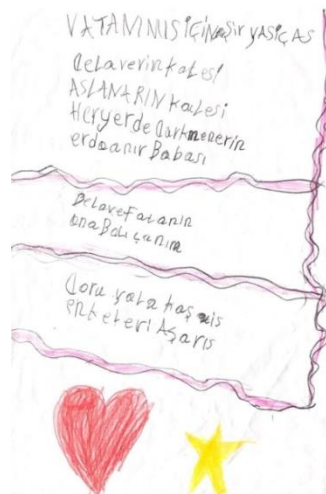 VATANIMIS İÇİN aşır YASIÇAS
Delaverin kalesi
ASLANARIN kalesi
Heryerde Durkmenerin
erdoanır Babası
Delavefatanın
ana Balı çanım
Doru yala kaç mis
enketeri Aşarıs